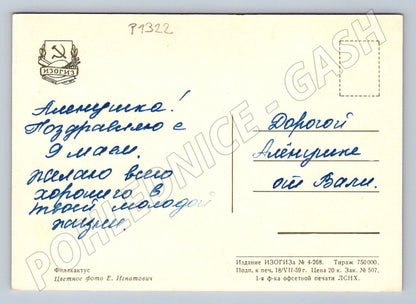 P1322
ИЗОГИЗ
Аленушка!
Поздравляю с
9 маем.
желаю всего
хорошего в
твоей молодой
жизни.
Дорогой
Алёнушке
от Вали.
Филлокактус
Цветное фото Е. Игнатович
Издание ИЗОГИЗа № 4-268. Тираж 750000.
Подп. к печ. 18/VII-59 г. Цена 20 к. Зак. № 507.
1-я ф-ка офсетной печати ЛСНХ.
POHLEDNICE - GASH